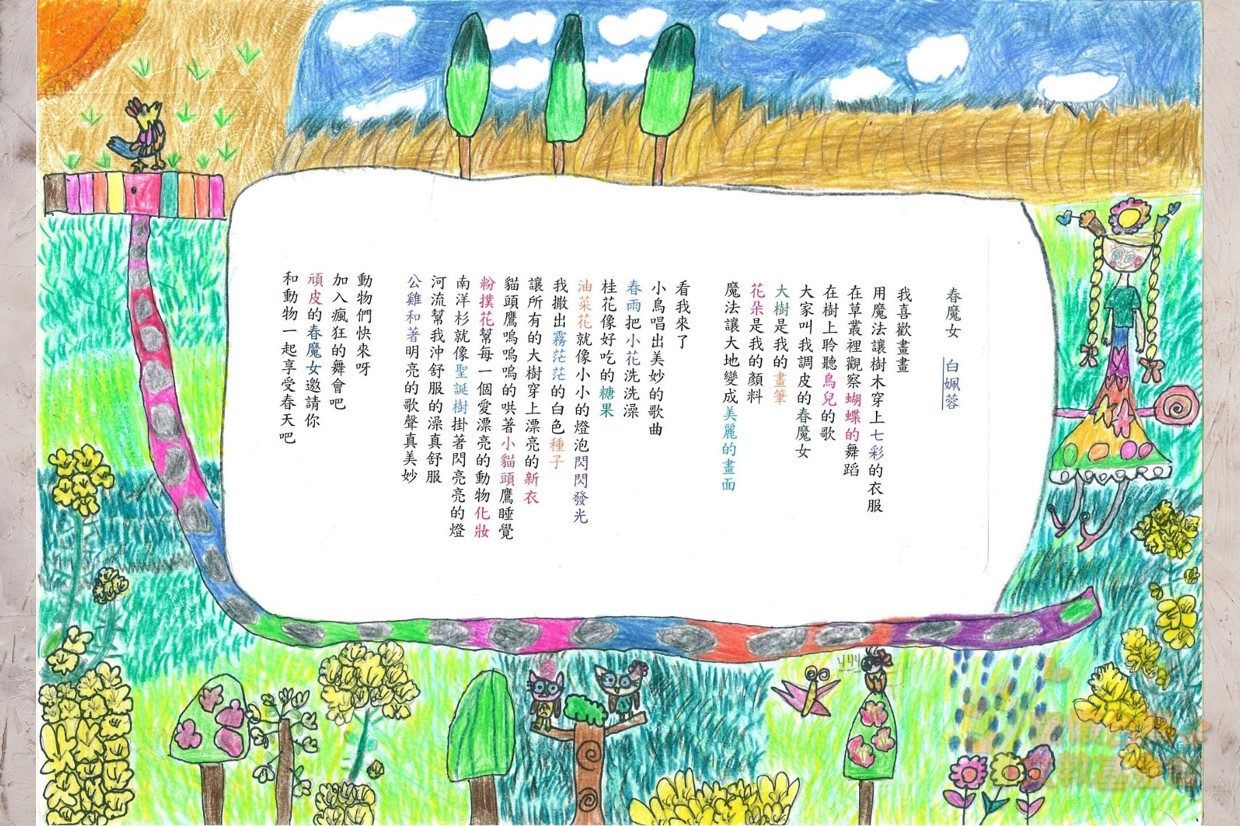 春魔女　白姵蓉
我喜歡畫畫
用魔法讓樹木穿上七彩的衣服
在草叢裡觀察蝴蝶的舞蹈
在樹上聆聽鳥兒的歌
大家叫我調皮的春魔女
大樹是我的畫筆
花朵是我的顏料
魔法讓大地變成美麗的畫面
看我來了
小鳥唱出美妙的歌曲
春雨把小花洗洗澡
桂花像好吃的糖果
油菜花就像小小的燈泡閃閃發光
我撒出霧茫茫的白色種子
讓所有的大樹穿上漂亮的新衣
貓頭鷹嗚嗚嗚的哄著小貓頭鷹睡覺
粉撲花幫每一個愛漂亮的動物化妝
南洋杉就像聖誕樹掛著閃亮亮的燈
河流幫我沖舒服的澡真舒服
公雞和著明亮的歌聲真美妙
動物們快來呀
加入瘋狂的舞會吧
頑皮的春魔女邀請你
和動物一起享受春天吧